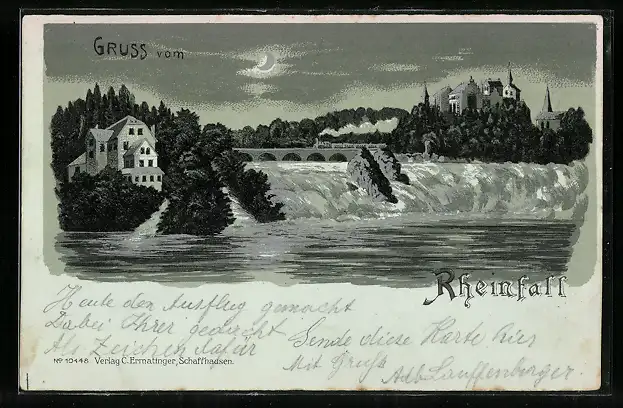 GRUSS vom
Rheinfall
Heute den Ausflug gemacht
Dabei Ihrer gedacht
Als Zeichen dafür
Sende diese Karte hier
Mit Gruß
Adb. Lauffenberger.
No 10448 Verlag C. Ermatinger, Schaffhausen.